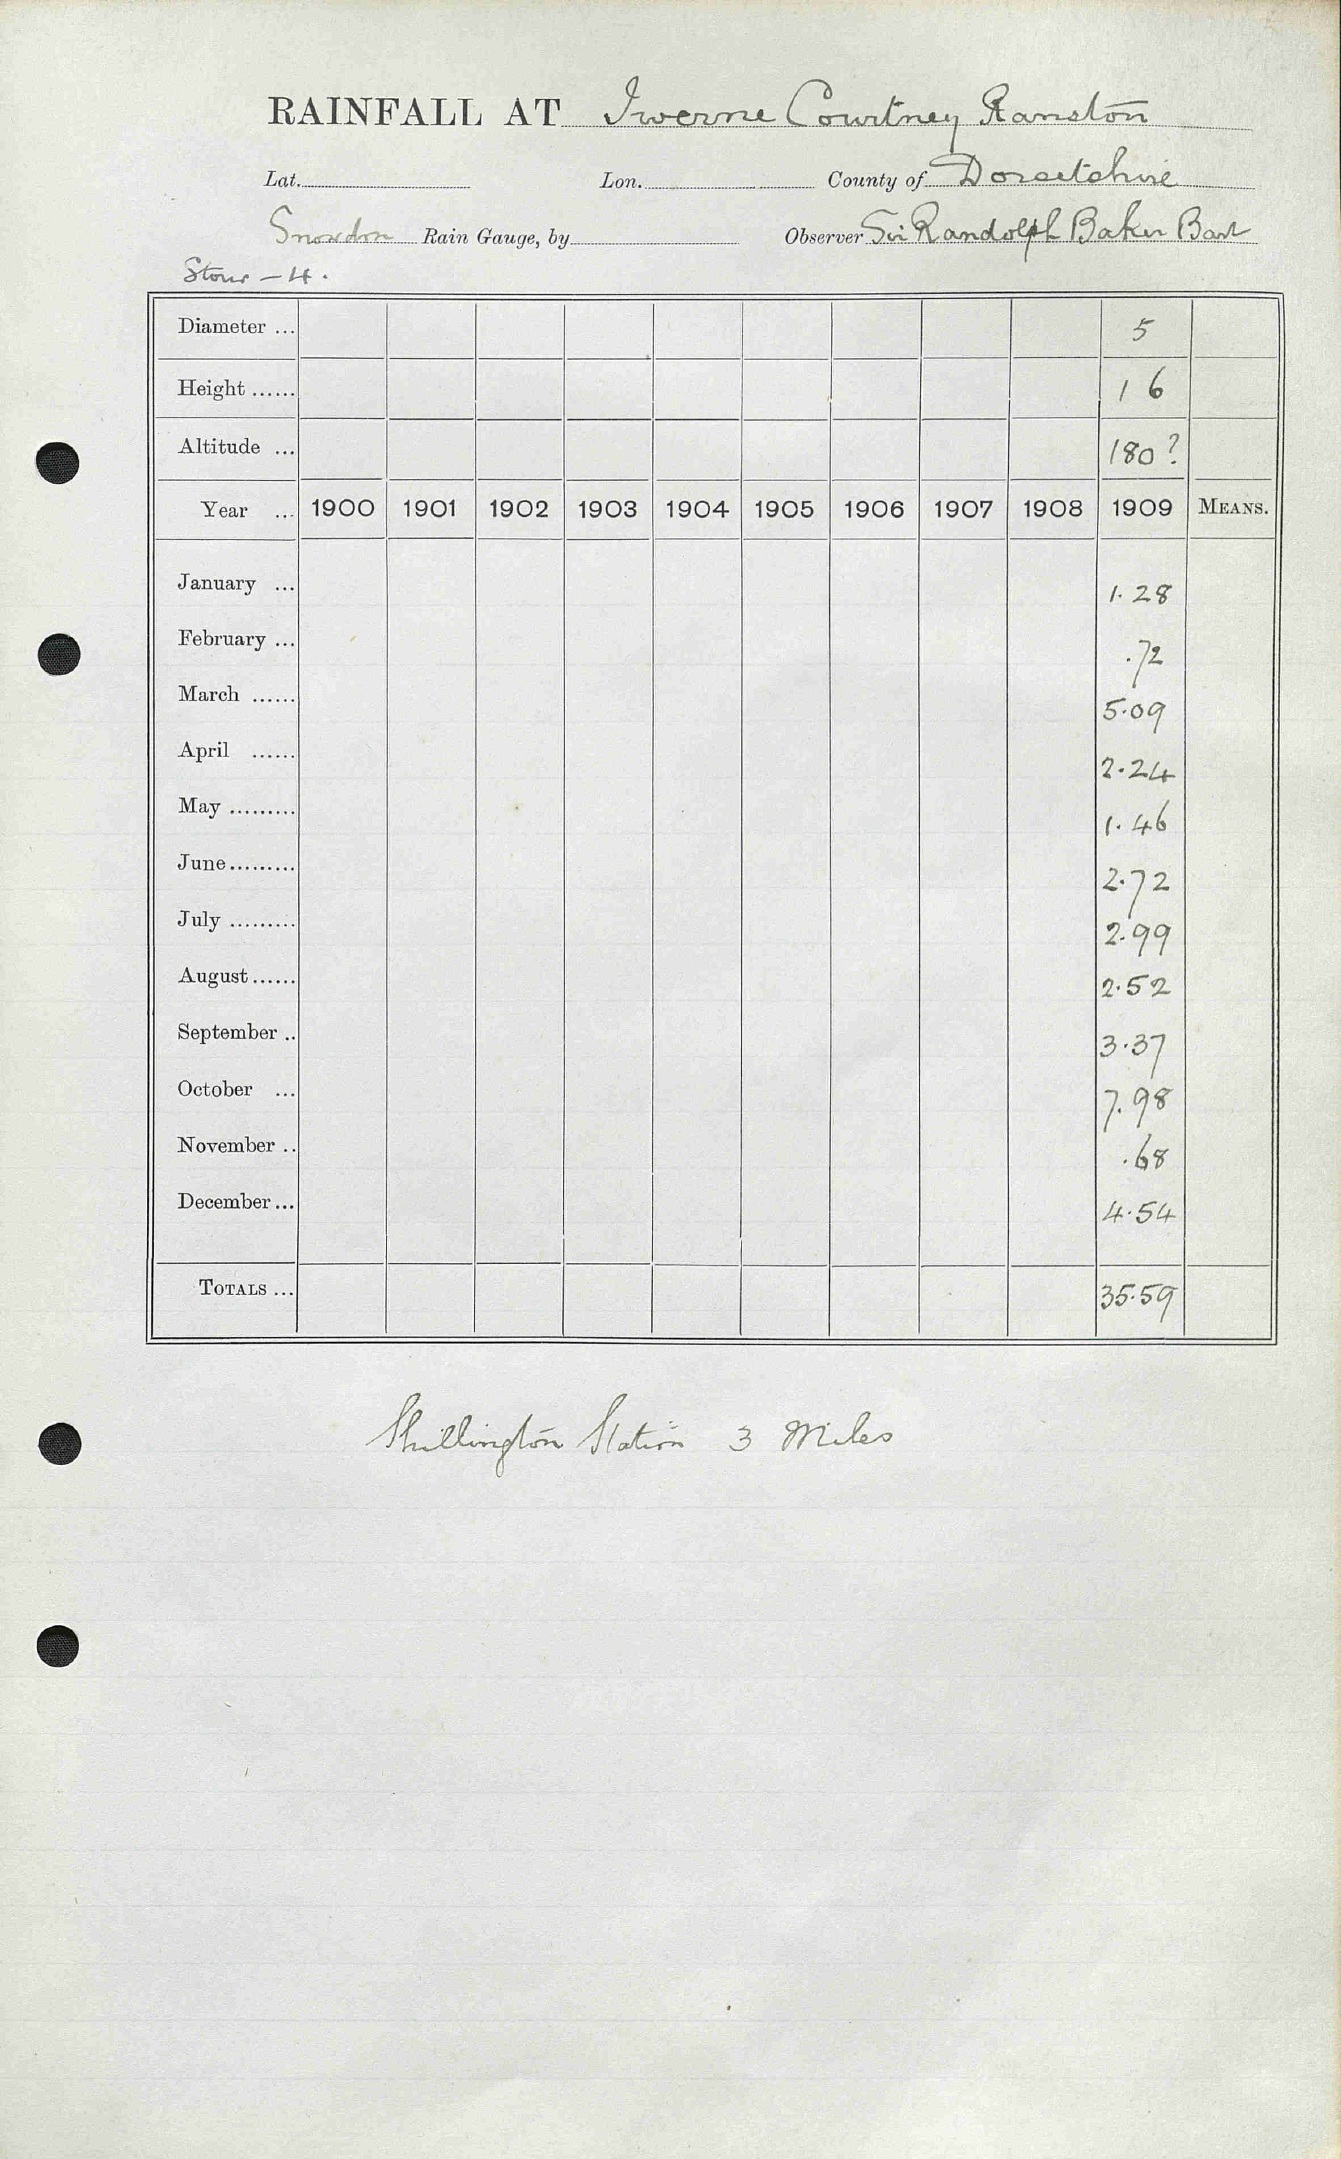 RAINFALL AT Iwerne Courtney Ranston
Lat. Lon. County of Dorsetshire
Snowdon Rain Gauge, by Observer Sir Randolph Baker Bart
Stour – 4.
Diameter ... 5
Height ...... 1 6
Altitude ... 180?
Year ... 1900 1901 1902 1903 1904 1905 1906 1907 1908 1909 MEANS.
January ... 1.28
February ... .72
March ...... 5.09
April ...... 2.24
May ......... 1.46
June ......... 2.72
July ......... 2.99
August ...... 2.52
September .. 3.37
October ... 7.98
November .. .68
December ... 4.54
TOTALS ... 35.59
Shillington Station 3 Miles